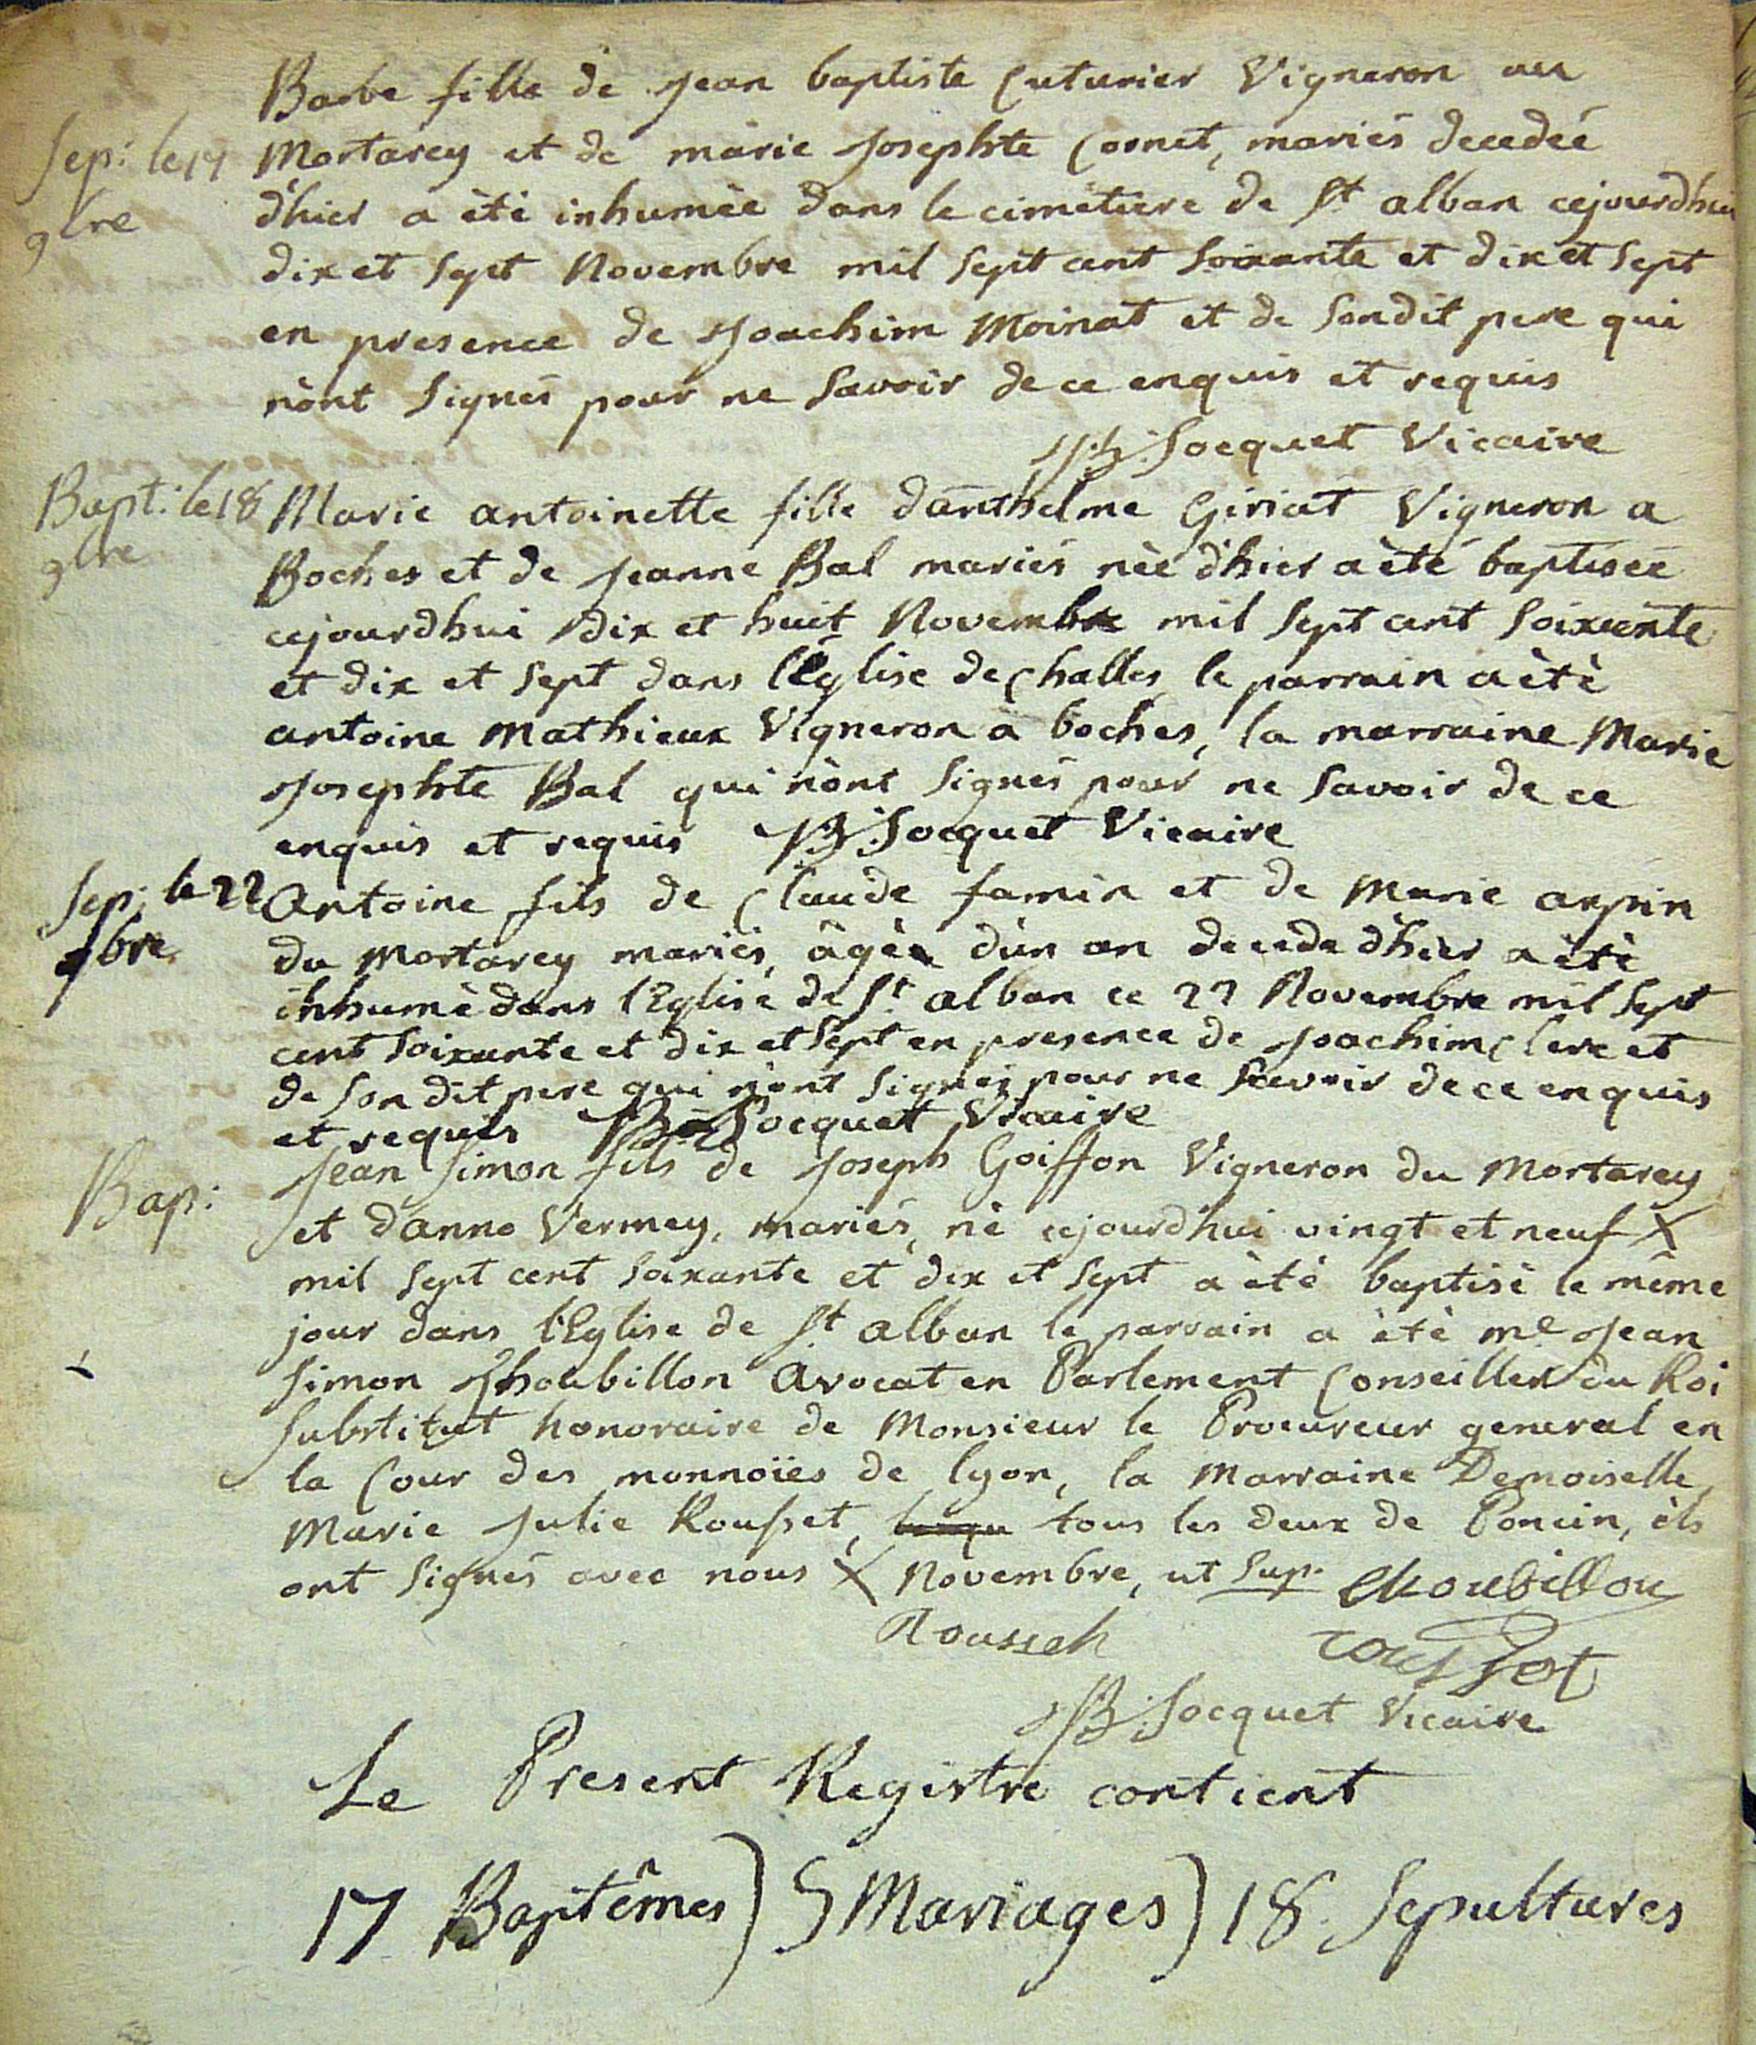 Barbe fille de Jean baptiste Cuturier Vigneron au
Sep: le 17 Mortarey et de marie Josephte Cornet, mariés decedeé
9bre d'hier a èté inhumèe dans le cimetiere de St alban cejourdhui
dix et sept Novembre mil sept cent soixante et dix et sept
en presence de Joachim Moinat et de sondit pere qui
n'ònt signés pour ne savoir de ce enquis et requis
JB: Jocquet Vicaire
Bapt: le 18 Marie antoinette fille d'anthelme Giriat Vigneron a
9bre Boches et de Jeanne Bal mariés nèe d'hier a èté baptisèe
cejourdhui dix et huit Novembre mil sept cent soixante
et dix et sept dans l'Eglise de Challes, le parrain a étè
antoine Mathieux Vigneron a boches, la marraine Marie
Josephte Bal qui n'ònt signés pour ne savoir de ce
enquis et requis JB: Jocquet Vicaire
Sep: le 22 Antoine fils de Claude famin et de Marie arpin
9bre du Mortarey mariés, âgè d'ùn an decede d'hier a èté
inhumè dans l'Eglise de St alban ce 22 Novembre mil sept
cent soixante et dix et sept en presence de Joachim Clerc et
de son dit pere qui n'ont signés pour ne savoir de ce enquis
et requis JB: Jocquet Vicaire
Bap: Jean Simon fils de Joseph Goiffon Vigneron du Mortarey
et d'anne Vermey, mariés, nè cejourd'hui vingt et neuf X
mil sept cent soixante et dix et sept a èté baptisè le même
jour dans l'Eglise de St alban le parrain a été me Jean
Simon Choubillon Avocat en Parlement Conseiller du Roi
substitut honoraire de Monsieur le Procureur general en
la Cour des monnoïes de lyon, la Marraine Demoiselle
Marie Julie Rousset, tous les deux de Poncin, ils
ont signés avec nous X Novembre, ut sup. Choubillou
Rousseh roussot
JB: Jocquet Vicaire
Le Present Registre contient
17 Baptêmes) 5 Mariages) 18 Sepultures